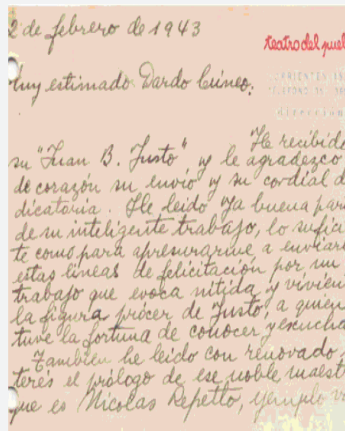 2 de febrero de 1943
teatro del pueb
CORRIENTES 15
Muy estimado Dardo Cúneo:
He recibido
su "Juan B. Justo" y le agradezco
de corazón su envío y su cordial de
dicatoria. He leído ya buena par
de su inteligente trabajo, lo sufici
te como para apresurarme a enviarl
estas líneas de felicitación por un
trabajo que evoca nítida y vivien
la figura prócer de Justo, a quien
tuve la fortuna de conocer y escucha
También he leído con renovado
terés el prólogo de ese noble maest
que es Nicolás Repetto, ejemplo v